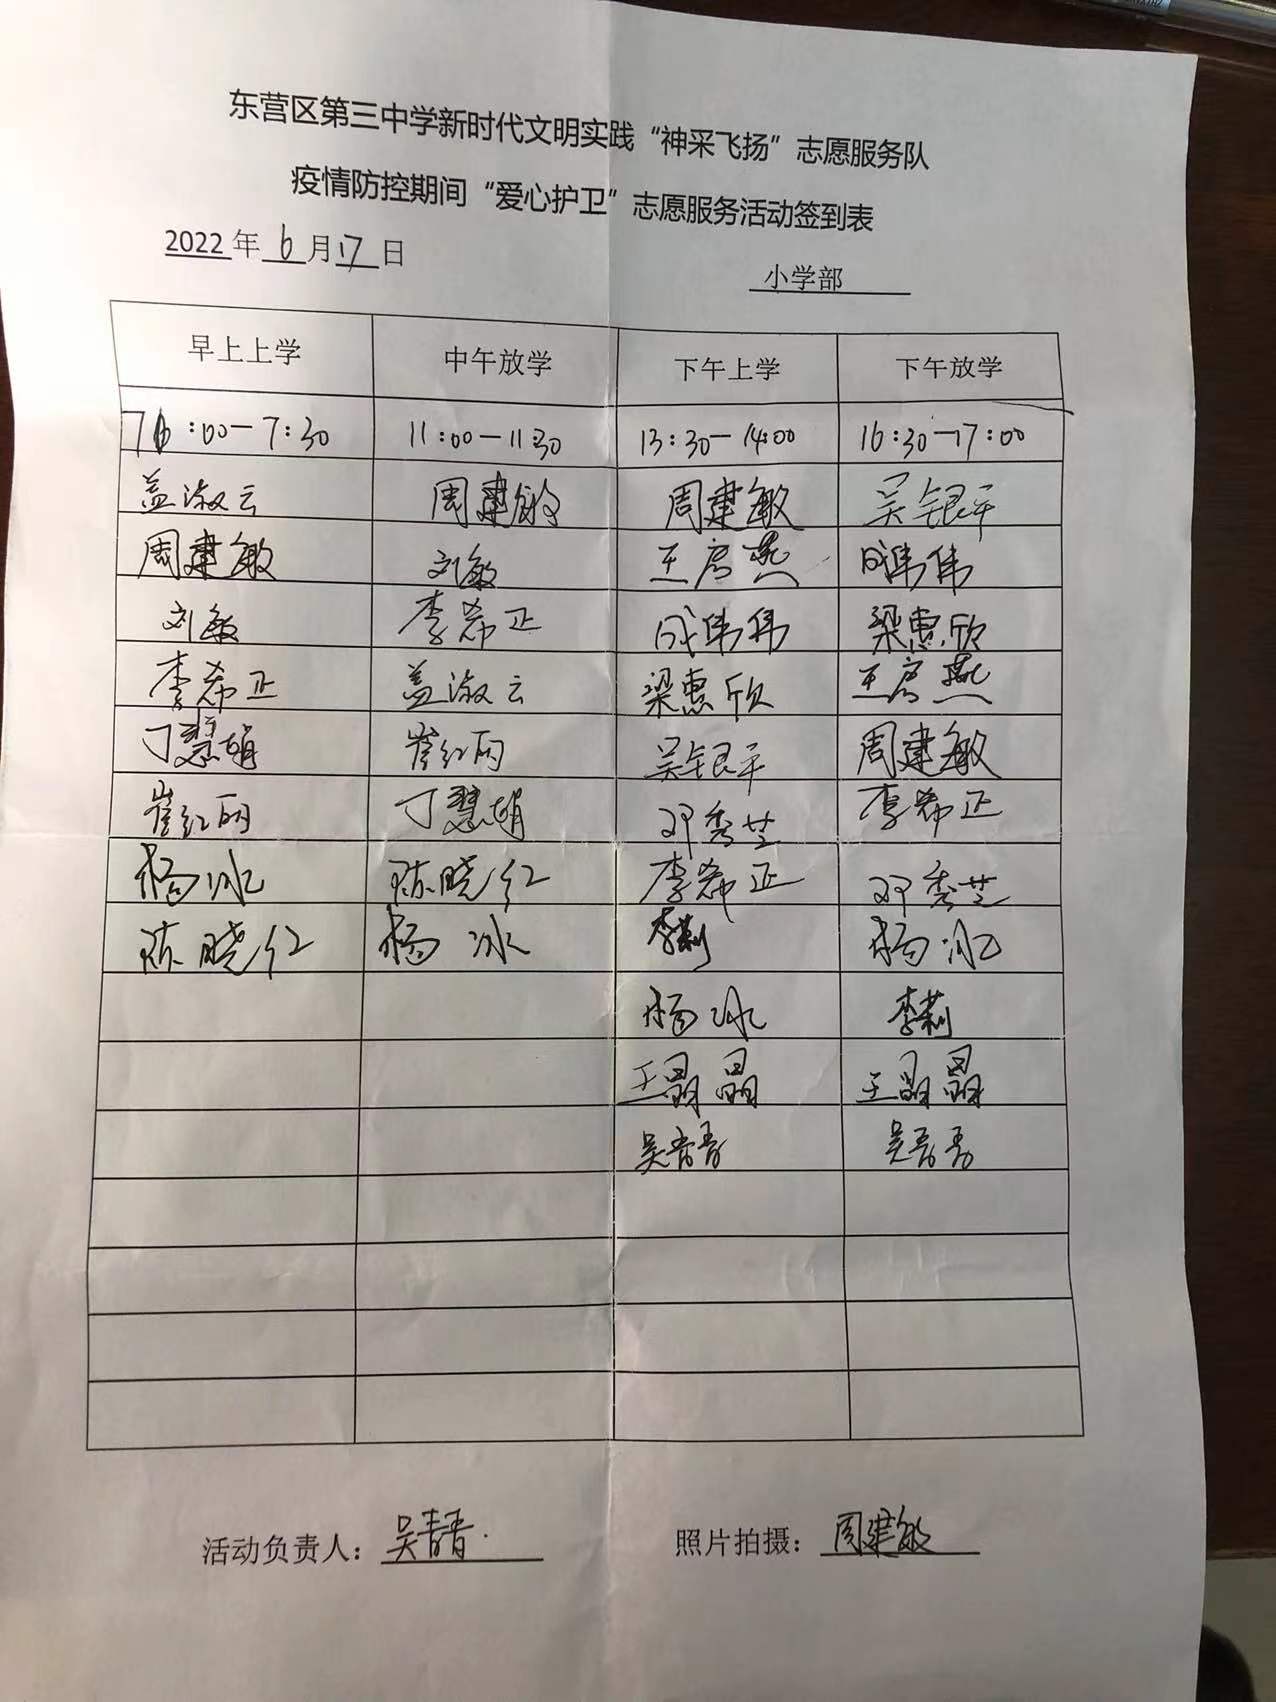 东营区第三中学新时代文明实践“神采飞扬”志愿服务队
疫情防控期间“爱心护卫”志愿服务活动签到表
2022年6月17日
小学部
早上上学 中午放学 下午上学 下午放学
7:00—7:30 11:00—11:30 13:30—14:00 16:30—17:00
盖淑云 周建敏 周建敏 吴银平
周建敏 刘敏 王房燕 成伟伟
刘敏 李希正 成伟伟 梁惠欣
李希正 盖淑云 梁惠欣 王房燕
丁慧娟 崔红丽 吴银平 周建敏
崔红丽 丁慧娟 邓秀芝 李希正
杨冰 陈晓红 李希正 邓秀芝
陈晓红 杨冰 李莉 杨冰
杨冰 李莉
王晶晶 王晶晶
吴青青 吴青青
活动负责人：吴青青 照片拍摄：周建敏